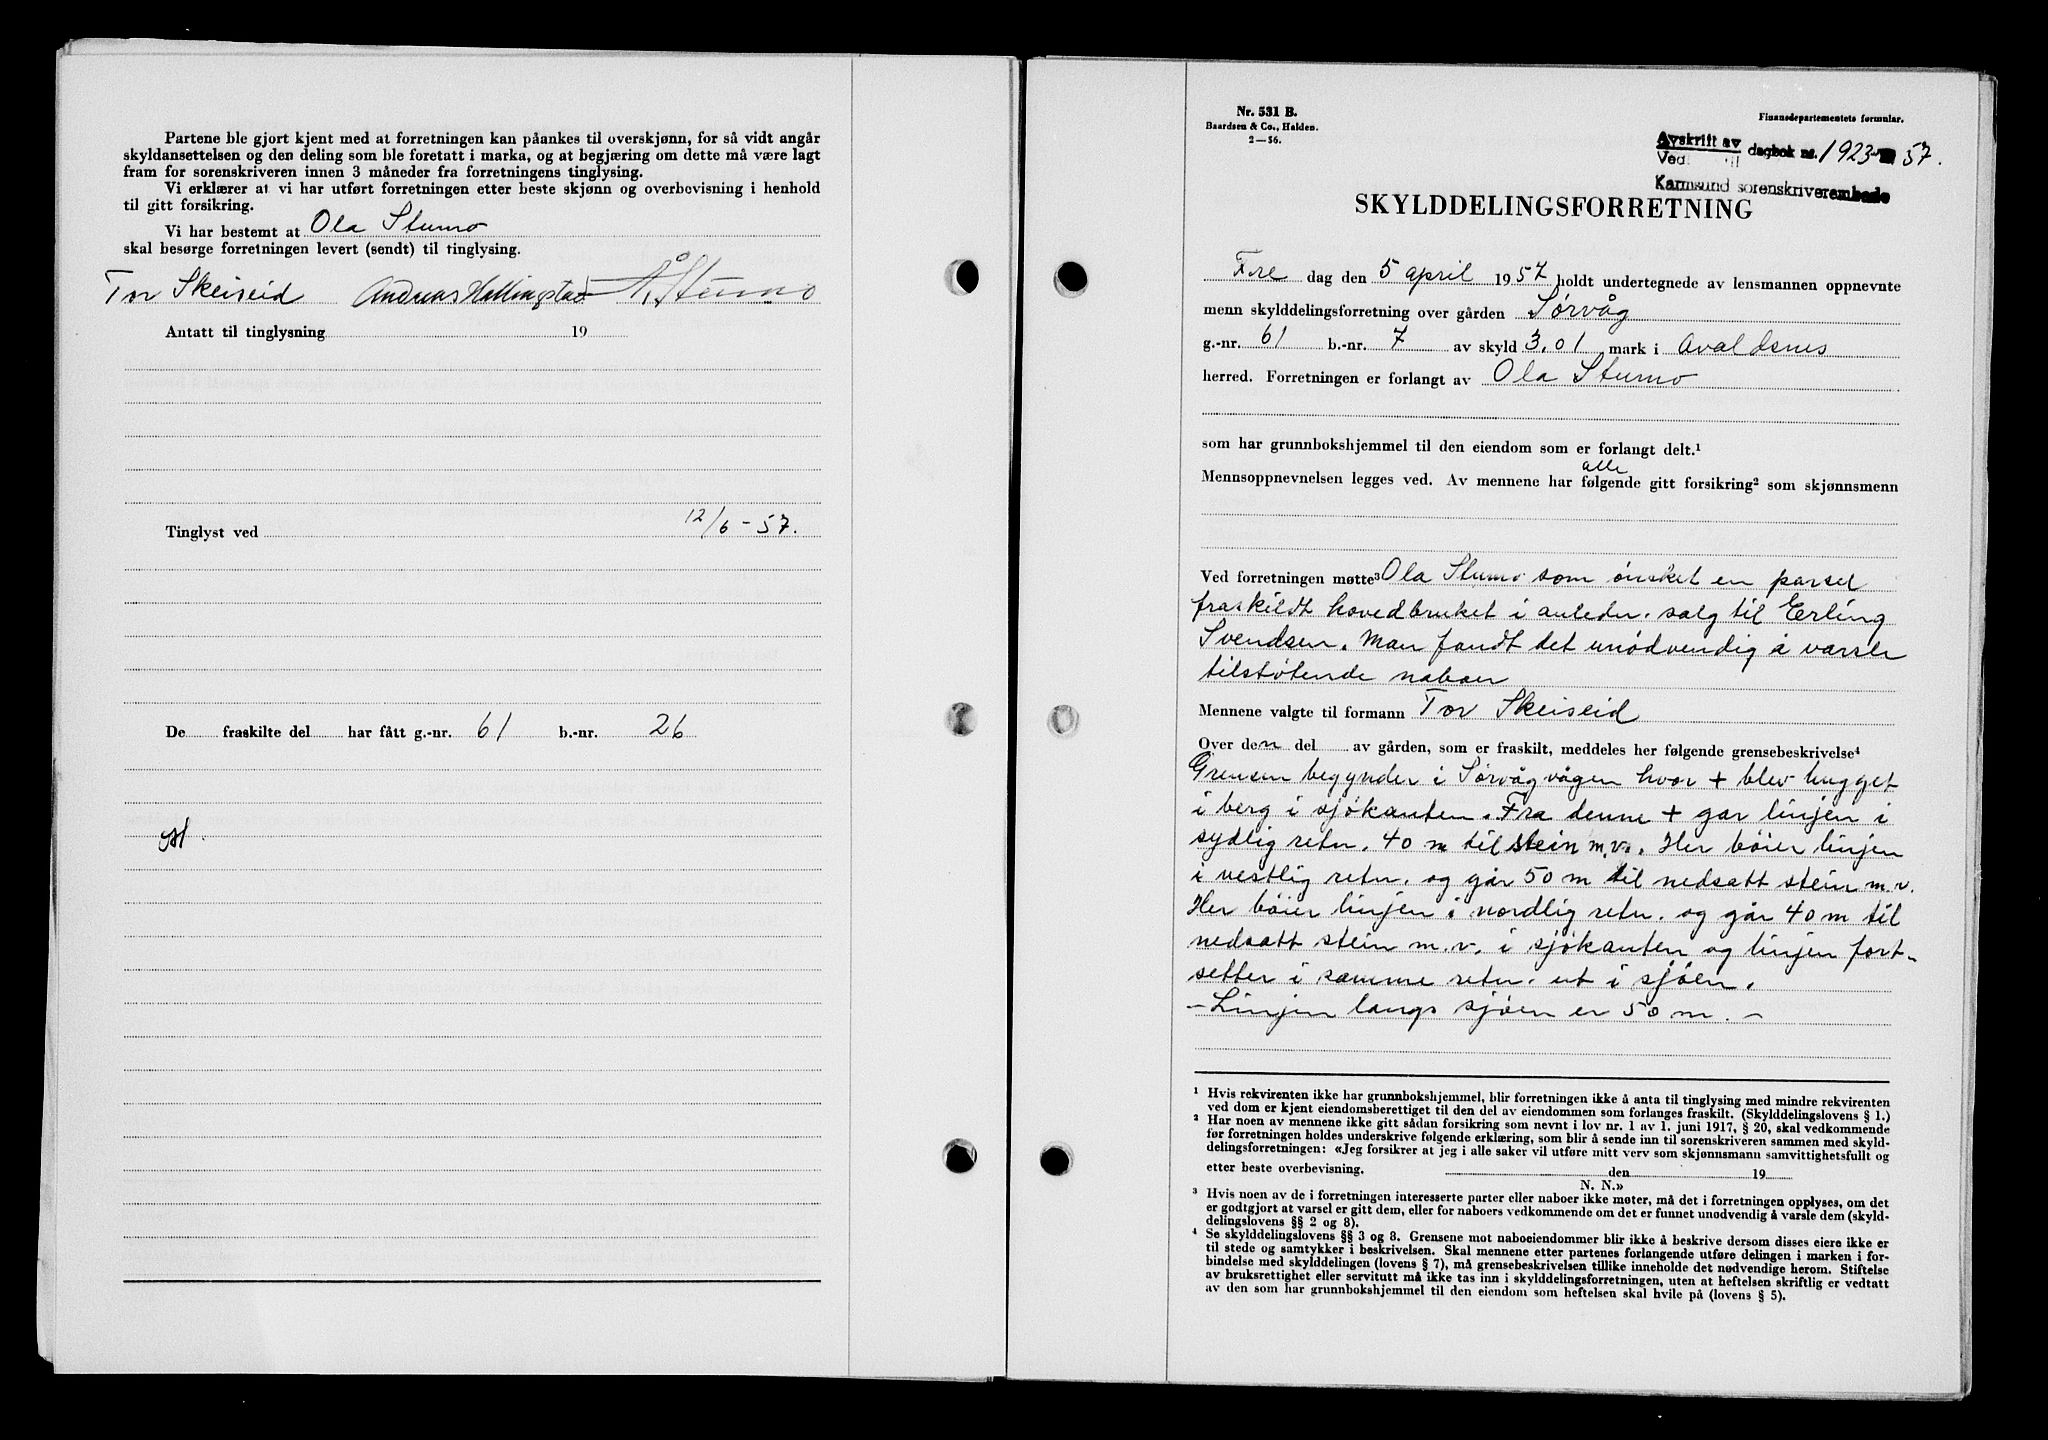 Partene ble gjort kjent med at forretningen kan påankes til overskjønn, for så vidt angår
skyldansettelsen og den deling som ble foretatt i marka, og at begjæring om dette må være lagt
fram for sorenskriveren innen 3 måneder fra forretningens tinglysing.
Vi erklærer at vi har utført forretningen etter beste skjønn og overbevisning i henhold
til gitt forsikring.
Vi har bestemt at Ola Stumo
skal besørge forretningen levert (sendt) til tinglysing.
Tor Skeiseid Andreas Hellingstad Å. Stumo
Antatt til tinglysning 19
Tinglyst ved 12/6-57.
De fraskilte del har fått g.-nr. 61 b.-nr. 26
Nr. 531 B.
Baardsen & Co., Halden.
2—56.
Finansdepartementets formular.
Avskrift av
Ved dagbok nr. 1923 57.
Karmsund sorenskriverembede
SKYLDDELINGSFORRETNING
Fre dag den 5 april 1957 holdt undertegnede av lensmannen oppnevnte
menn skylddelingsforretning over gården Sørvåg
g.-nr. 61 b.-nr. 7 av skyld 3,01 mark i Avaldsnes
herred. Forretningen er forlangt av Ola Stumo
som har grunnbokshjemmel til den eiendom som er forlangt delt.¹
alle
Mennsoppnevnelsen legges ved. Av mennene har følgende gitt forsikring² som skjønnsmenn
Ved forretningen møtte³ Ola Stumo som ønsket en parsel
fraskildt hovedbruket i anledn. salg til Erling
Svendsen. Man fandt det unødvendig å varsle
tilstøtende naboer
Mennene valgte til formann Tor Skeiseid
Over den del av gården, som er fraskilt, meddeles her følgende grensebeskrivelse⁴
Grensen begynder i Sørvågvågen hvor + blev hugget
i berg i sjøkanten. Fra denne + gar linjen i
sydlig retn. 40 m til stein m.v. Her bøier linjen
i vestlig retn. og går 50 m til nedsatt stein m.v.
Her bøier linjen i nordlig retn. og går 40 m til
nedsatt stein m.v. i sjøkanten og linjen fort-
setter i samme retn. ut i sjøen.
- Linjen langs sjøen er 50 m. -
¹ Hvis rekvirenten ikke har grunnbokshjemmel, blir forretningen ikke å anta til tinglysing med mindre rekvirenten
ved dom er kjent eiendomsberettiget til den del av eiendommen som forlanges fraskilt. (Skylddelingslovens § 1.)
² Har noen av mennene ikke gitt sådan forsikring som nevnt i lov nr. 1 av 1. juni 1917, § 20, skal vedkommende
før forretningen holdes underskrive følgende erklæring, som blir å sende inn til sorenskriveren sammen med skyld-
delingsforretningen: «Jeg forsikrer at jeg i alle saker vil utføre mitt verv som skjønnsmann samvittighetsfullt og
etter beste overbevisning. den 19
N. N.»
³ Hvis noen av de i forretningen interesserte parter eller naboer ikke møter, må det i forretningen opplyses, om det
er godtgjort at varsel er gitt dem, eller for naboers vedkommende om det er funnet unødvendig å varsle dem (skyld-
delingslovens §§ 2 og 8).
⁴ Se skylddelingslovens §§ 3 og 8. Grensene mot naboeiendommer blir ikke å beskrive dersom disses eiere ikke er
til stede og samtykker i beskrivelsen. Skal mennene etter partenes forlangende utføre delingen i marken i for-
bindelse med skylddelingen (lovens § 7), må grensebeskrivelsen tillike inneholde det nødvendige herom. Stiftelse
av bruksrettighet eller servitutt må ikke tas inn i skylddelingsforretningen, uten at heftelsen skriftlig er vedtatt
av den som har grunnbokshjemmel til den eiendom som heftelsen skal hvile på (lovens § 5).